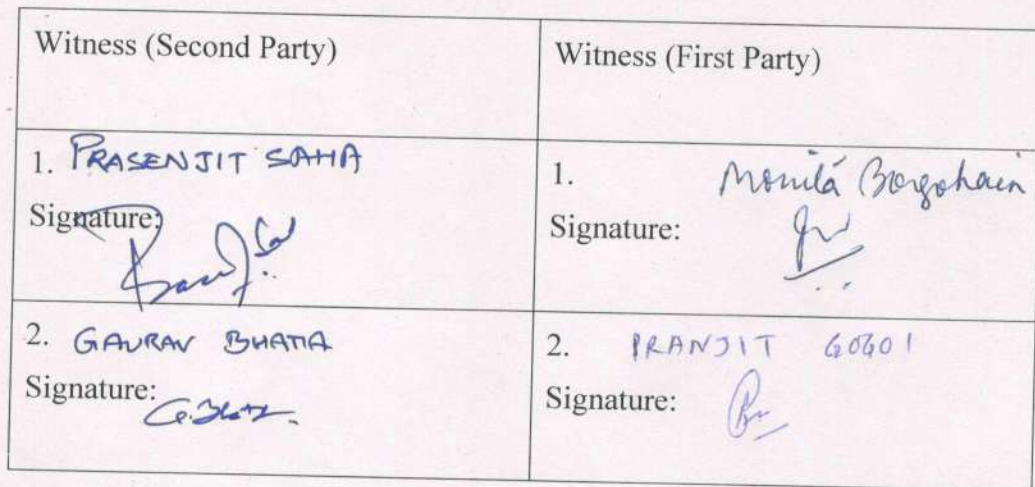 Witness (Second Party)
Witness (First Party)
1. PRASENJIT SAHA
Signature:
1. Monila Borgohain
Signature:
2. GAURAV BHATIA
Signature:
G. Bhatia
2. PRANJIT GOGOI
Signature: